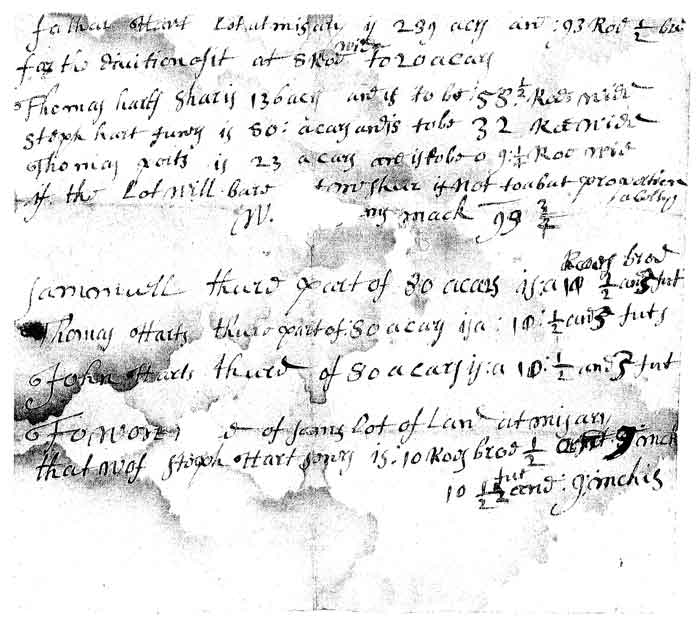 father Hart Lot at misary is 239 acrs and : 93 Rod 1/2 bro
for the divition of it at 8 Rod wide to 20 acars
Thomas harts Shar is 136 acrs and is to be : 53 1/2 Rods wide
Steph hart Juner is 80 : acars and is to be 32 Rod wide
Thomas ports is 23 acars and is to be 9 : 1/4 Rod wid
if the Lot will bare meshur if Not to abat proportion
W. my mack 99 3/4
Roods brod
Sammuell thurd part of 80 acars is : a 10 1/2 and 3 fut
Thomas Harts thurd part of : 80 acars is a : 10 : 1/2 and 3 futs
John Harts thurd of 80 acars is : a 10 : 1/2 and 3 fut
of sams Lot of Land at misary
that wos Steph Hart Jonrs is : 10 Rods brod 1/2 fut 9 inch
10 1/2 fut and : 9 inchis